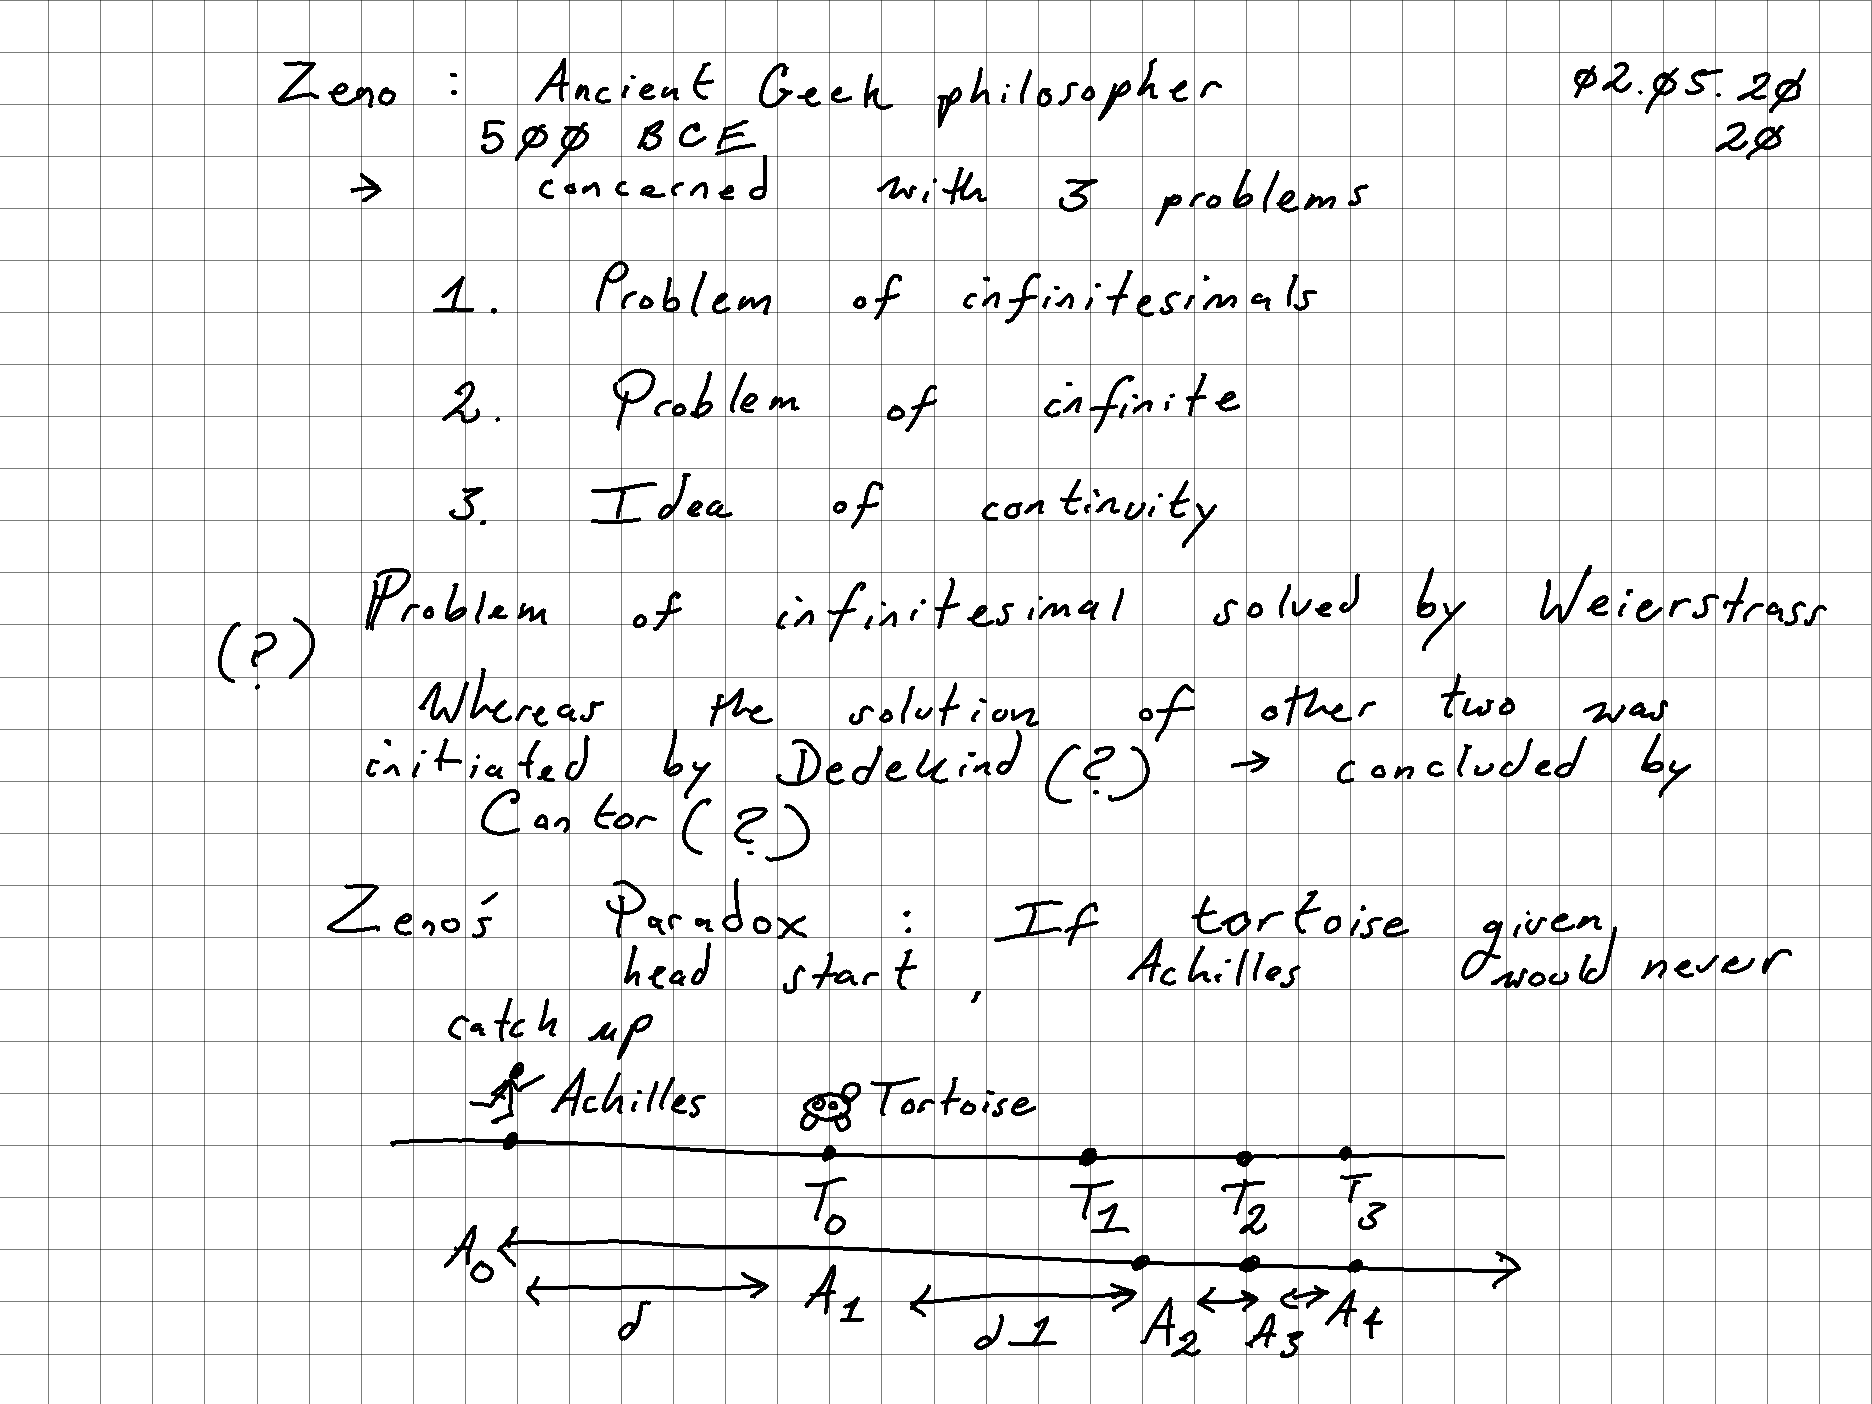 Zeno : Ancient Geek philosopher
02.05.20
20
500 BCE
→ concerned with 3 problems
1. Problem of infinitesimals
2. Problem of infinite
3. Idea of continuity
(?) Problem of infinitesimal solved by Weierstrass
Whereas the solution of other two was
initiated by Dedekind (?) → concluded by
Cantor (?)
Zeno's Paradox : If tortoise given
head start, Achilles would never
catch up
Achilles Tortoise
T0 T1 T2 T3
A0 A1 A2 A3 A4
d d1